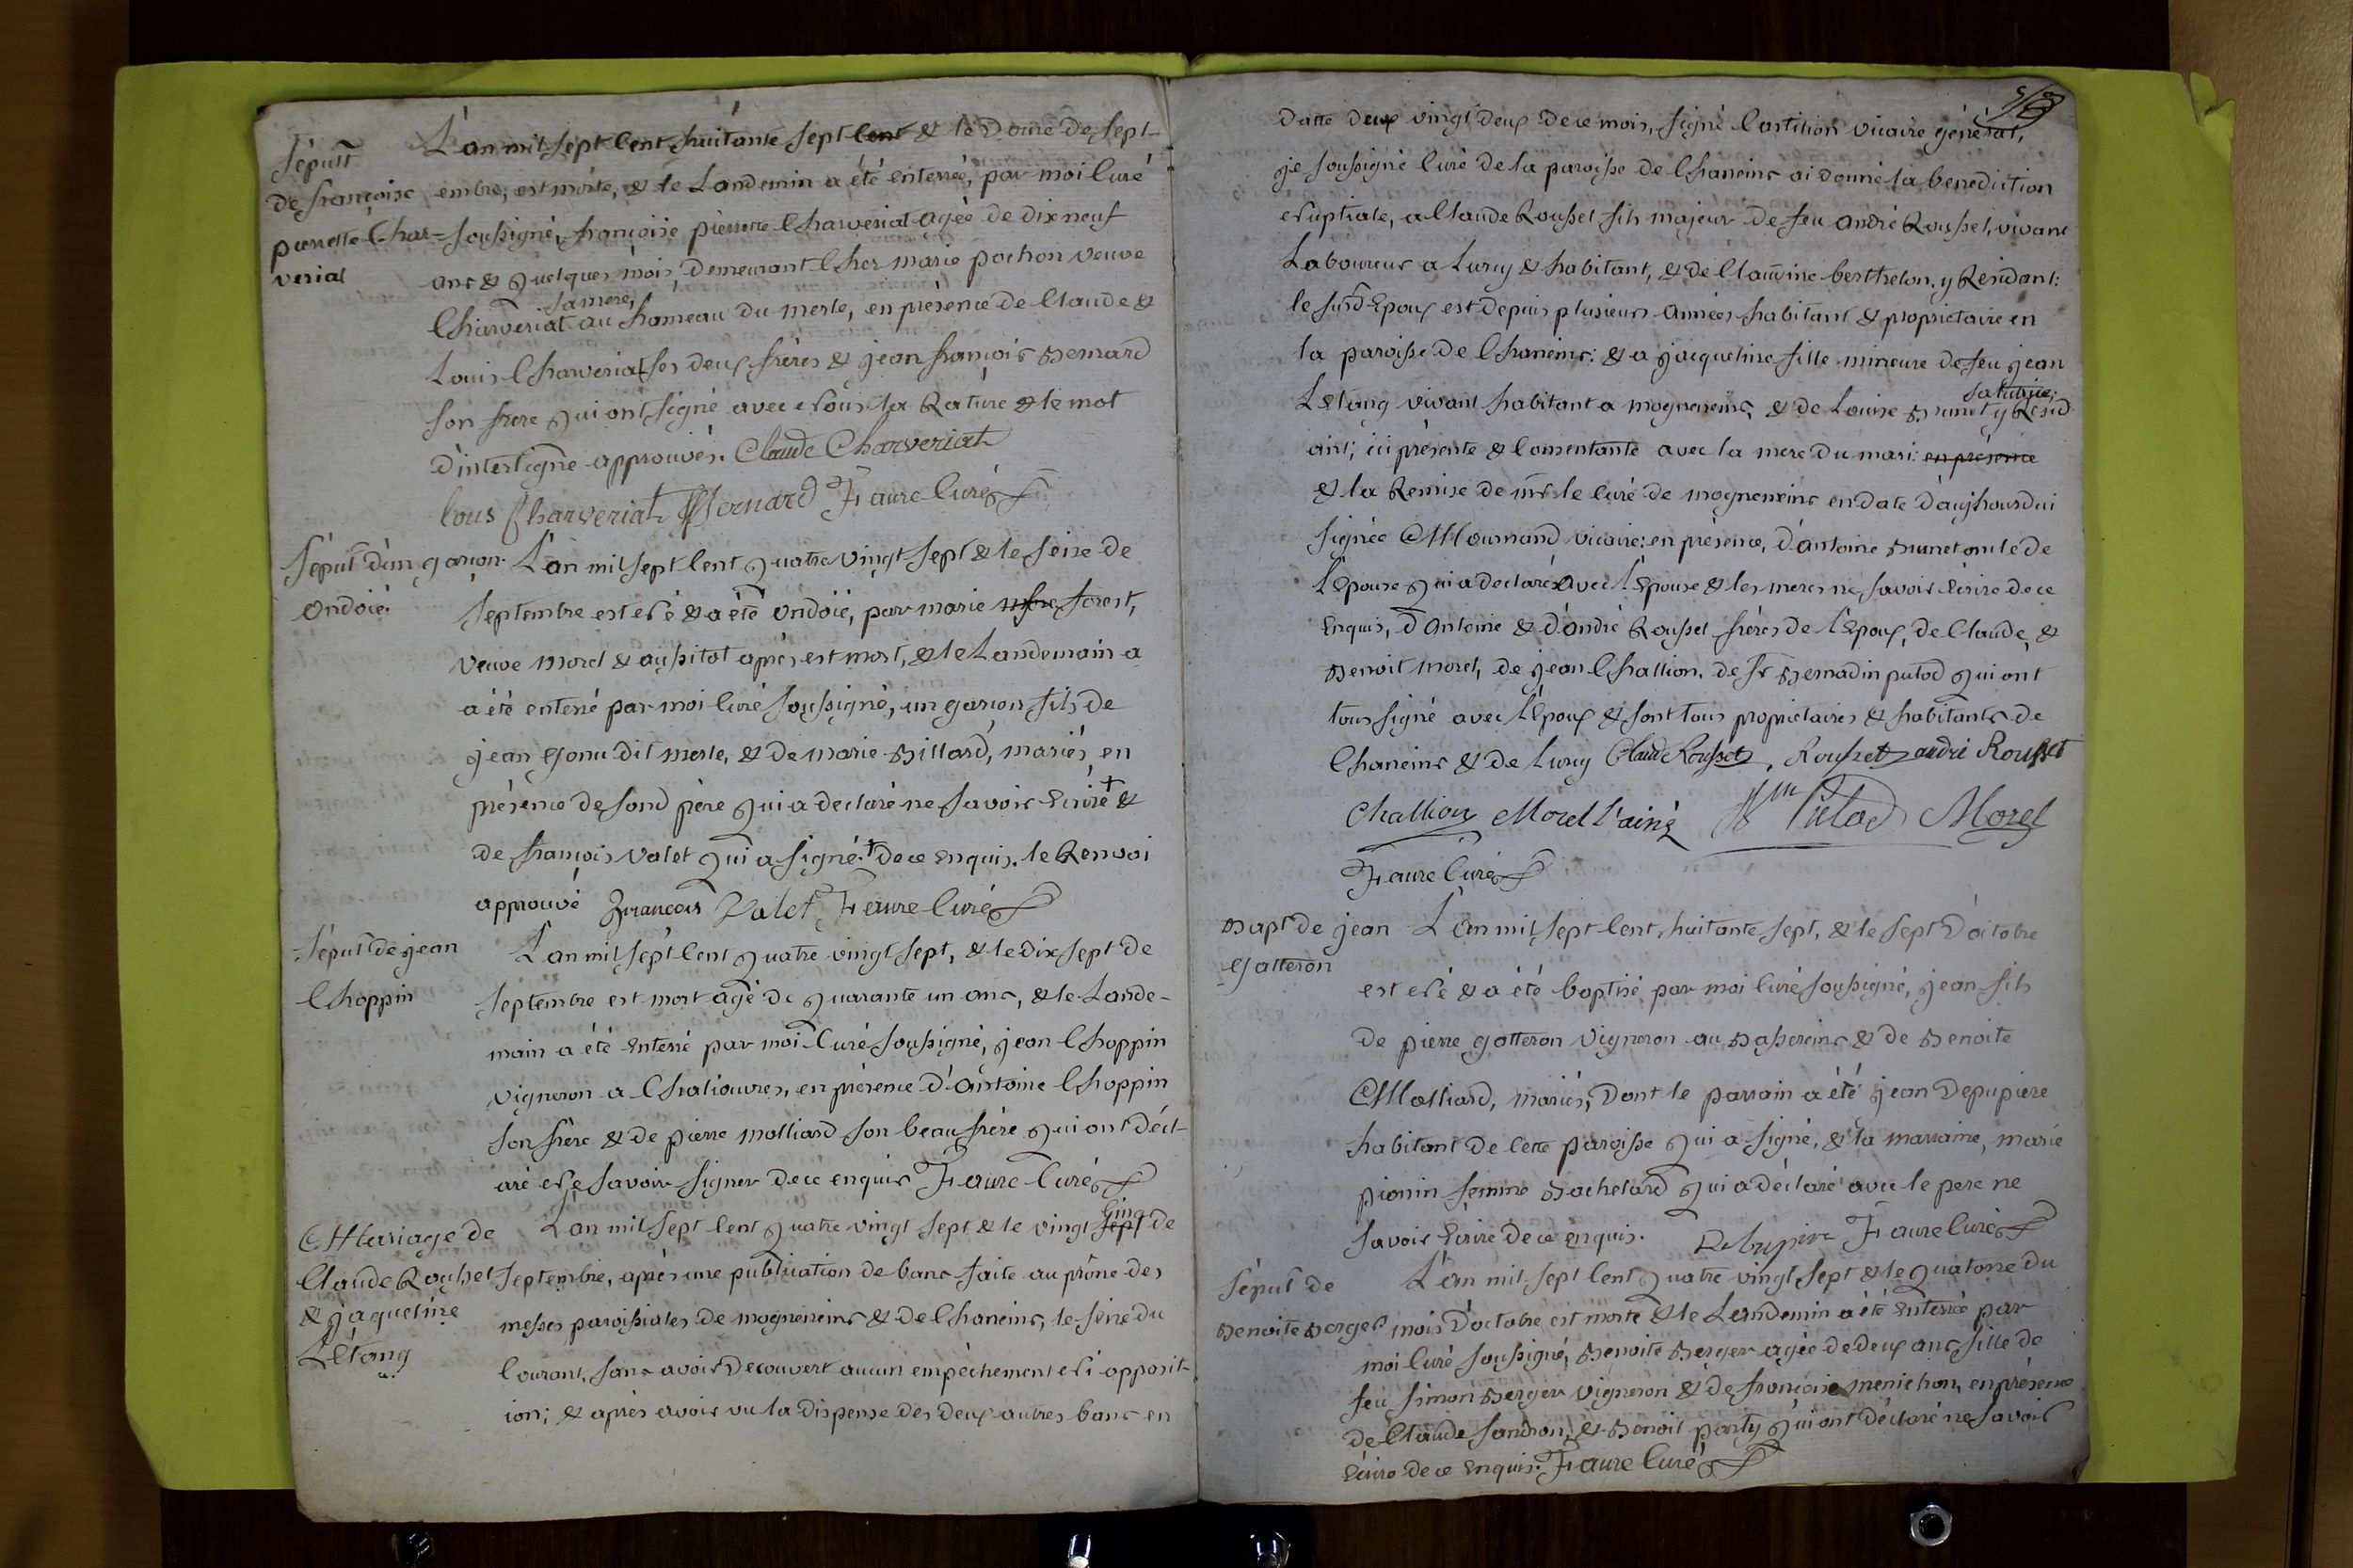 Sépult
de françoise
pierrette Char-
verial
L'an mil sept Cent huitante sept Cent & le Douze de sept-
embre, est morte, & le Landemin a été enterrée, par moi Curé
soussigné, françoise pierrette Charveriat agée de dix neuf
ans & quelques mois Demeurant Chez marie pochon veuve
sa mere,
Charveriat au hameau du merle, en présence de Claude &
Louis Charveriat ses deux frères & jean françois Bernard
son frere qui ont signé avec Nous la Rature & le mot
d'interligne approuvés. Claude Charveriat
Lous Charveriat Bernard Faure Curé
Sépult d'un garçon
ondoié.
L'an mil sept Cent quatre vingt sept & le seize de
septembre est Né & a été ondoié, par marie forest,
veuve morel & aussitot après est mort, & le Landemain a
a été enterré par moi Curé soussigné, un garçon fils de
jean gonu dit merle, & de marie Billard, mariés, en
présence de sond père qui a declaré ne savoir Ecrire + &
de françois valet qui a signé. + de ce Enquis. le Renvoi
approuvé francois Valet Faure Curé
Sépult de jean
Choppin
L'an mil sept Cent quatre vingt sept, & le dix sept de
septembre est mort agé de quarante un ans, & le Lande-
main a été Enterré par moi Curé soussigné, jean Choppin
vigneron a Chaliouvres, en présence d'Antoine Choppin
son frère & de pierre molliard son beau frère qui ont décl-
aré Ne savoir signer de ce enquis Faure Curé
Mariage de
Claude Rousset
& jaqueline
Létang
L'an mil sept Cent quatre vingt sept & le vingt sept cinq de
septembre, après une publication de banc faite au prône des
messes paroissiales de mogneneins & de Chaneins, le seize du
Courant, sans avoir decouvert aucun empêchement Ni opposit-
ion; & après avoir vu la dispense des deux autres bans en
datte deux vingt deux de ce mois, signé Castillon vicaire général,
je soussigné Curé de la paroisse de Chaneins ai donné la benediction
Nuptiale, a Claude Rousset fils majeur de feu andré Rousset, vivant
Laboureur a Lurcy & habitant, & de Claudine berthelon, y Résidant:
le susd Epoux est depuis plusieurs années habitant & proprietaire en
la paroisse de Chaneins: & a jacqueline fille mineure de feu jean
Létang vivant habitant a mogneneins, & de Louise Brunet y Résid-
sa tutrice;
ant; ici présente & Consentante avec la mere du mari: en présence
& la Remise de mr le Curé de mogneneins en date d'aujhourdui
signée Mournand vicaire: en présence, d'antoine Brunet oncle de
l'Epouse qui a declaré avec l'Epouse & les meres ne savoir Ecrire de ce
Enquis, d'Antoine & d'andré Rousset frères de l'Epoux, de Claude, &
Benoit morel, de jean Challion, de sr Bernadin putod qui ont
tous signé avec l'Epoux & sont tous proprietaires & habitants de
Chaneins & de Lurcy Claude Rousset, Rousset andré Rousset
Challion Morel l'ainé Putod Morel
Faure Curé
Bapt de jean
Gatteron
L'an mil sept Cent, huitante sept, & le sept d'octobre
est Né & a été baptisé par moi Curé soussigné, jean fils
de pierre gatteron vigneron au Bassereins & de Benoite
Malliard, mariés, dont le parrain a été jean Depupiere
habitant de Cette paroisse qui a signé, & la marraine, marie
pionin femme Bachelard qui a déclaré avec le pere ne
savoir Ecrire de ce enquis. Faure Curé
Sépult de
Benoite Berger
L'an mil sept Cent quatre vingt sept & le quatorze du
mois d'octobre est morte & le Landemin a été Enterrée par
moi Curé soussigné, Benoite Berger agée de deux ans, fille de
feu simon Berger vigneron & de françoise menichon, en présence
de Claude sandron, & Benoit party qui ont déclaré ne savoir
Ecrire de ce Enquis. Faure Curé